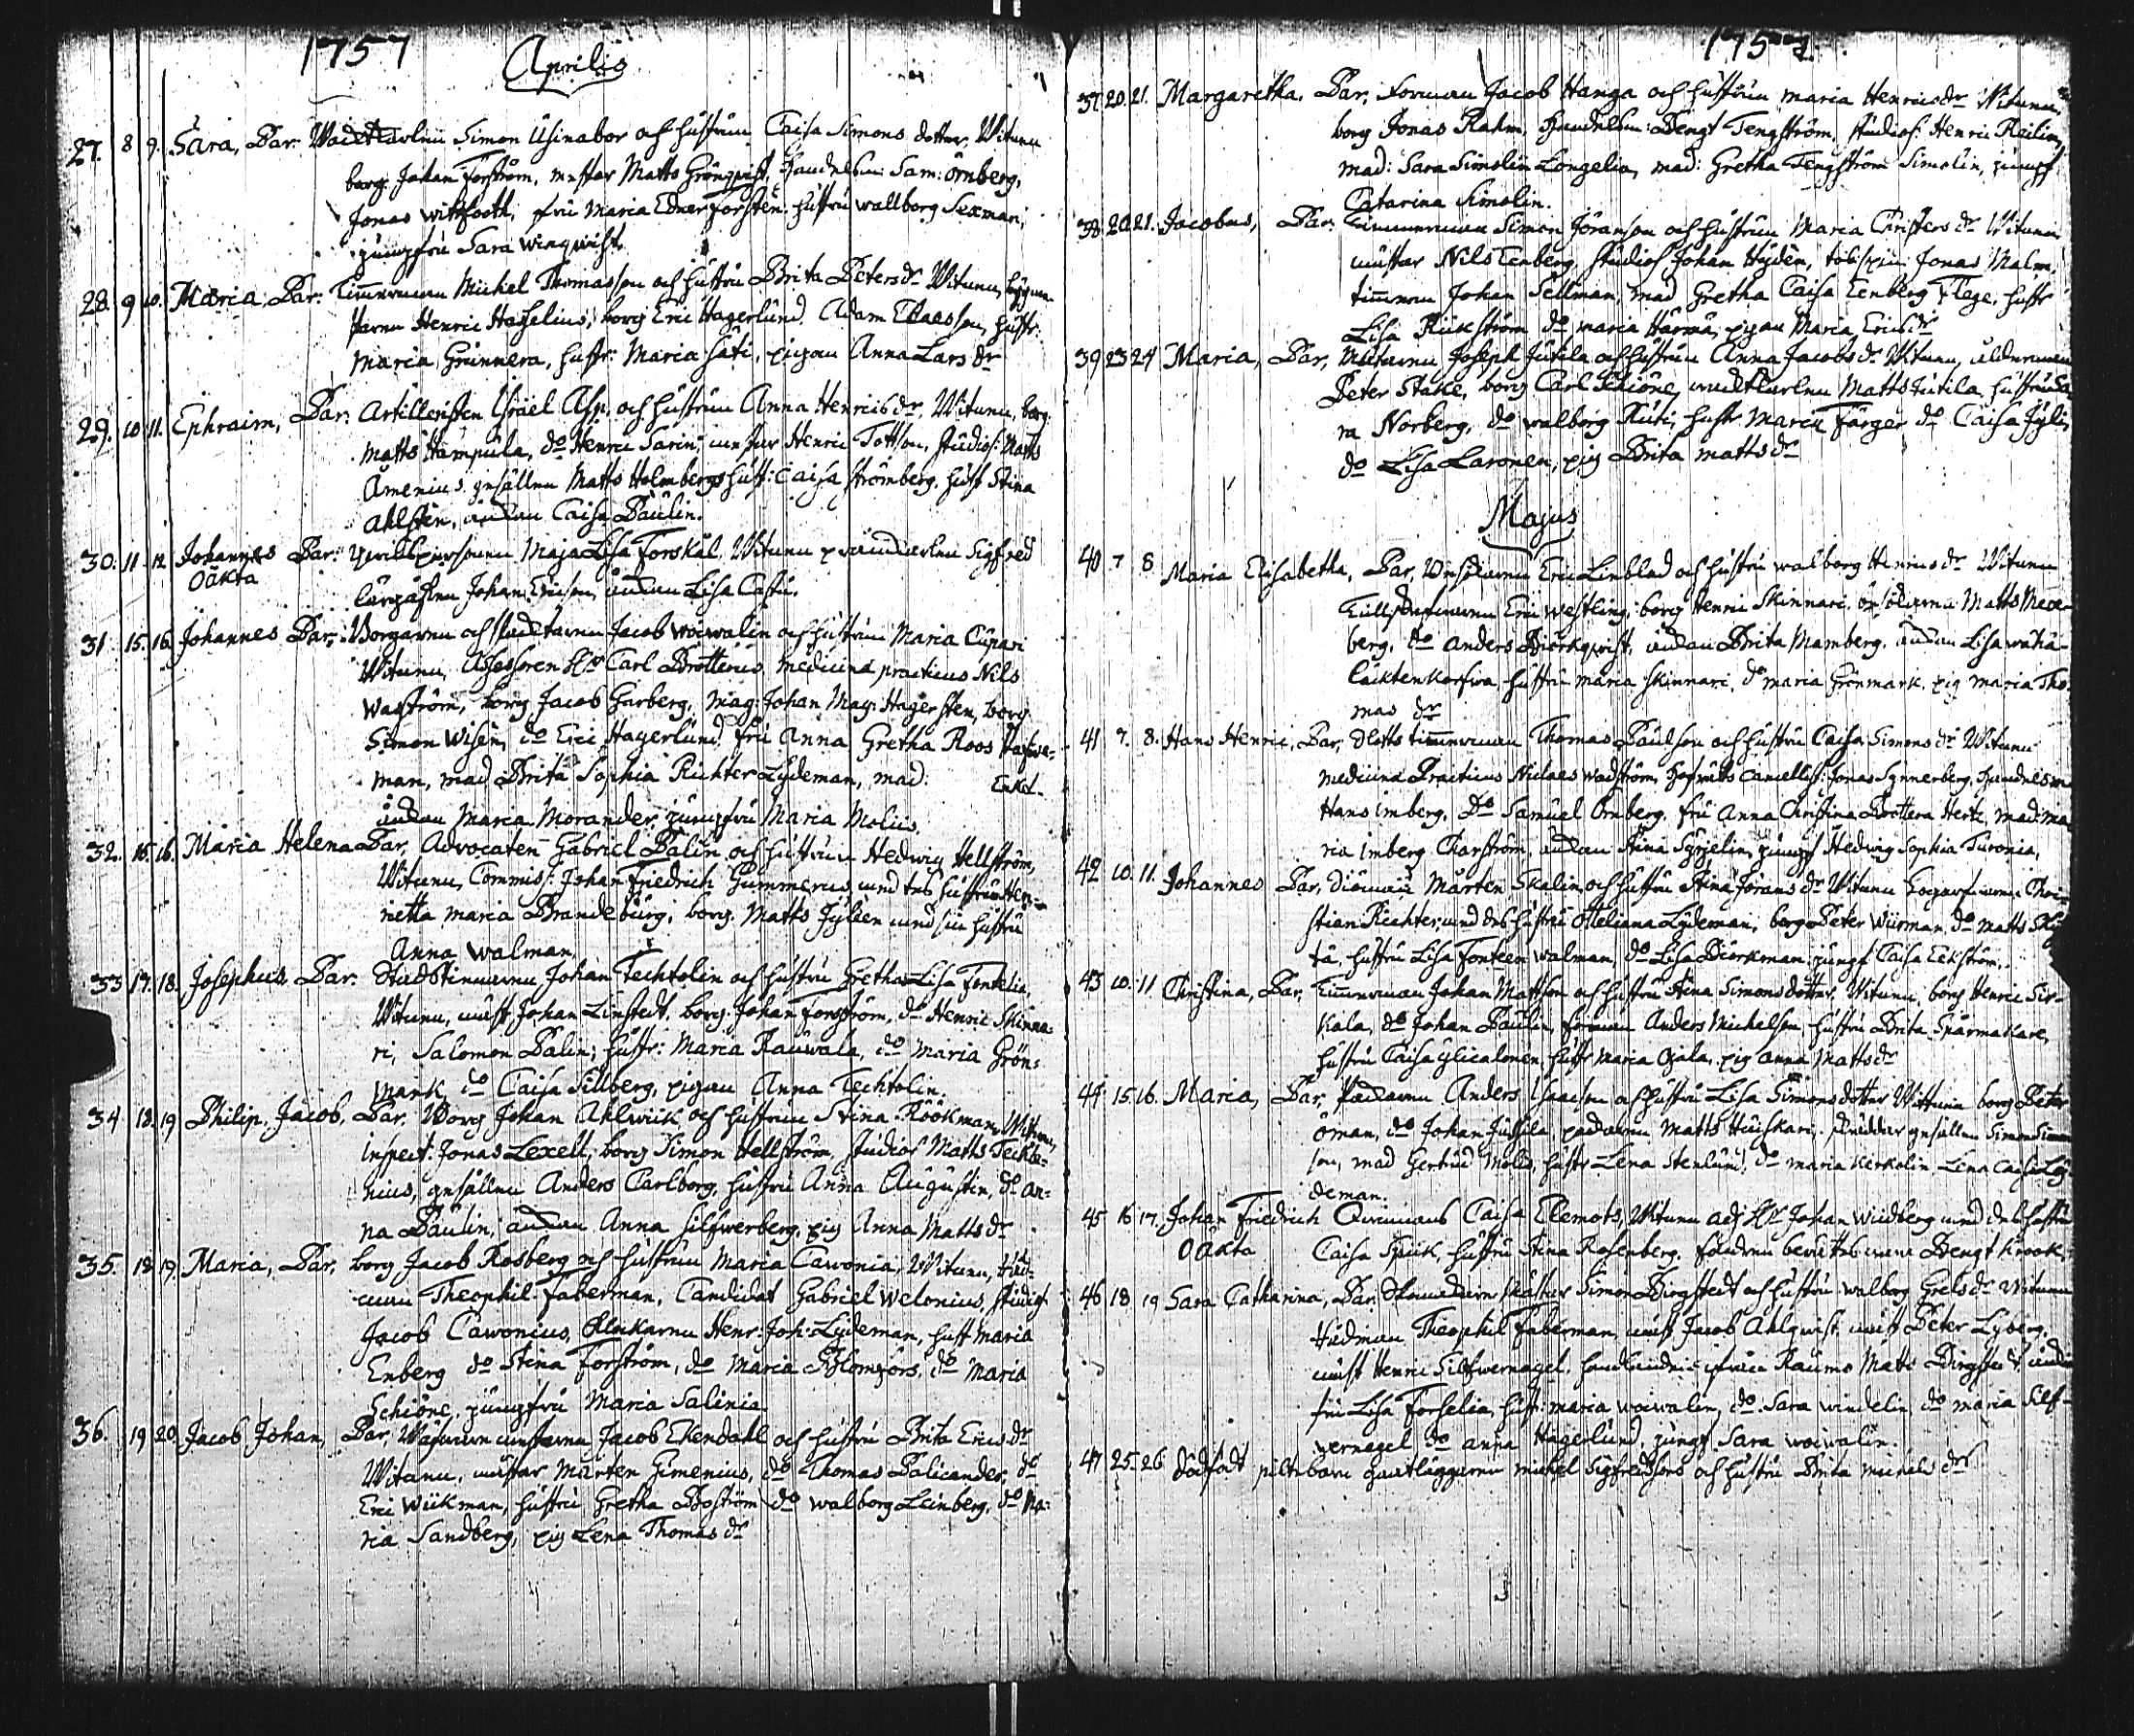 1757
Aprilis
27. 8 9. Sara, Par: Simon Usinabor och hustrun Caisa Simons dotter, Witnen
borg: Johan Forström, mestar Matts Grönqvist, Handelsm: Sam: örnberg,
Jonas wittfooth, fru Maria Edner Forsteen hustru wallborg Sexmani,
jungfru Sara winqvist.
28. 9 10. Maria, Par: Timmerman Michel Thomasson och hustru Brita Petersdr Witnen,
Henric Hagelius, borg Eric Hagerlund Adam Claesson, hustr:
Maria Grunnera, hustr: Maria Säti, pigan Anna Lars dr
29. 10 11. Ephraim, Par: Artilleristen Israel Asp, och hustrun Anna Henricsdr, Witnen, borg:
Matts Hampula, do Henric Sarin, mestar Henric Tottson, studios: Matts
Amenius. gesällen Matts Holmbergs hust: Caisa Strömberg. hust Stina
Ahlsten, änkan Caisa Paulin.
30. 11 12 Johannes Par: qwinspersonen Maja Lisa Forskål. Witnen Sigfred
Oäkta
Johan Ericson, änkan Lisa Castu.
31 15. 16 Johannes Par: Borgaren och Jacob woiwalin och hustrun Maria Cupari
Witnen, Assessoren Hr Carl Brotterus medicinæ practicus Nils
wadström, borg Jacob Garberg, mag: Johan Mag: Hagersten, borg
Simon Wisen, do Eric Hagerlund fru Anna Gretha Roos
man, mad Brita Sophia Richter Lydeman, mad: Enkel.
änkan Maria Morander, jungfru Maria Molus.
32. 15. 16. Maria Helena Par, Advocaten Gabriel Palin och hustrun Hedwig Hellström,
Witnen, Commiss: Johan Friedrich Gummerus med des hustru Hen-
rietta Maria Brandeburg, borg. Matts Jyleen med sin hustru
Anna walman.
33 17. 18. Josephus. Par. Johan Techtolin och hustru Gretha Lisa Fontelia,
Witnen, mest Johan Linstedt, borg: Johan Forsström, do Henric Skinna-
ri, Salomon Palin; hustr: Maria Rauwala, do Maria Grön-
mark, do Caisa Sillberg, pigan Anna Techtolin.
34 18. 19 Philip. Jacob, Par, Borg Johan Ahlwik och hustrun Stina Röökman, Witnen,
inspect: Jonas Lexell, borg Simon Hellström, studios Matts Techæ-
nius, gesällen Anders Carlborg, hustru Anna Augustin, do An-
na Paulin, änkan Anna Silfwerberg, pig Anna Matts dr
35. 18 19. Maria, Par, borg Jacob Rosberg och hustrun Maria Cawonia, Witnen, Råd-
man Theophil. Faberman, Candidat Gabriel Welonius, studios
Jacob Cawonius, Klockaren Henr: Joh: Lydeman, hust Maria
Enberg do Stina Forström, do Maria Blomfors. do Maria
Schiöne, jungfru Maria Salinia.
36. 19 20. Jacob Johan, Par, Jacob Ekendahl och hustru Brita Erics dr
Witnen, mestar Mårten Gimenius, do Thomas Palicander, do
Eric Wiikman, hustru Gretha Boström do walborg Leinberg, do Ma-
ria Sandberg, pig Lena Thomas dr
1757.
37. 20. 21. Margaretha. Par, Forman Jacob Hanga och hustrun Maria Henricsdr Witnen,
borg Jonas Rahm, Handelsm: Bengt Tengström, studios: Henric Reilin,
mad: Sara Simolin Longelia, mad: Gretha Tengström Simolin, jungf
Catarina Simolin.
38. 20. 21. Jacobus, Par: Timmerman Simon Jöranson och hustrun Maria Christers dr Witnen
mestar Nils Eenberg, studios Johan Hyden, Jonas Malm,
timmerm Johan Sellman, mad Gretha Caisa Eenberg Flege, hustr
Lisa Riikström do Maria Harmä, pigan Maria Ericsdr
39 23 24 Maria, Par, Joseph Jutila och hustrun Anna Jacobsdr Witnen, ålderman
Peter Stake, borg Carl Schiöne, Matts Jutila hustru Sa
ra Norberg, do walborg Kuti, hustr Maria Färger do Caisa Jylin
do Lisa Laronen, pig Brita Matts dr
Majus
40 7 8 Maria Elisabetha, Par, Eric Linblad och hustru walborg Henrics dr Witnen
Eric Westling, borg Henric Skinnari, Matts Mece-
berg, do Anders Biörkqvist, änkan Brita Mamberg, änkan Lisa wähä-
laicktenkorfwa hustru Maria Skinnari, do Maria Grönmark, pig Maria Tho-
mas dr
41 7. 8. Hans Henric, Par, Slotts timmerman Thomas Paulson och hustru Caisa Simons dr Witnen
medicinæ Practicus Niclaes wadström, Hofrätts Cancellist: Jonas Synnerberg, Handelsm
Hans Imberg, do Samuel Örnberg. fru Anna Christina Brottera Hertz, mad: Ma-
ria Imberg Charström, änkan Stina Syrjelin, jungf Hedwig Sophia Turonia,
42 10. 11. Johannes Par, Mårten Skalin och hustru Stina Jörans dr Witnen Chri-
stian Richter, med des hustru Otteliana Lydeman, borg Peter Wurman, do Matts
ta, hustru Lisa Fonteen Walman, do Lisa Biörkman, jungf Caisa Eckström.
43 10. 11 Christina, Par, Timmerman Johan Mattson och hustru Stina Simonsdotter, Witnen, borg Henric Sir-
kala, do Johan Paulin, forman Anders Michelson, hustru Brita Spärmakare,
hustru Caisa Ylicalonen, hustr Maria Ojala, pig Anna Matts dr
44 15. 16. Maria, Par, Anders Isaacson och hustru Lisa Simonsdotter Wittnen borg Peter
öman, do Johan Jussila, Matts Huiskari, gesällen Simon Simon
son, mad Gertrud Molis, hustr Lena Stenlund, do Maria Kerkolin Lena Caisa Ly-
deman.
45 16 17. Johan Friedrich Caisa Clemets, Witnen adj Hr Johan Widberg med des hustru
Oäkta Caisa Spiik, hustru Stina Rosenberg. Bengt Krook.
46 18 19 Sara Catharina, Par, Simon Birgstedt och hustru walborg Grels dr Witnen
Rådman Theophil Faberman, mest Jacob Ahlqvist, mest Peter Lyberg.
mest Henric Silfwernagel, Raumo Matts Birgstedt
fru Lisa Forselia, hust: Maria Woiwalin, do Sara Windelin, do Maria Silf-
wernagel, do Anna Hagerlund jungf Sara Woiwalin.
47 25. 26 Dödfödt Michel Sigfredsons och hustru Brita Michels dr